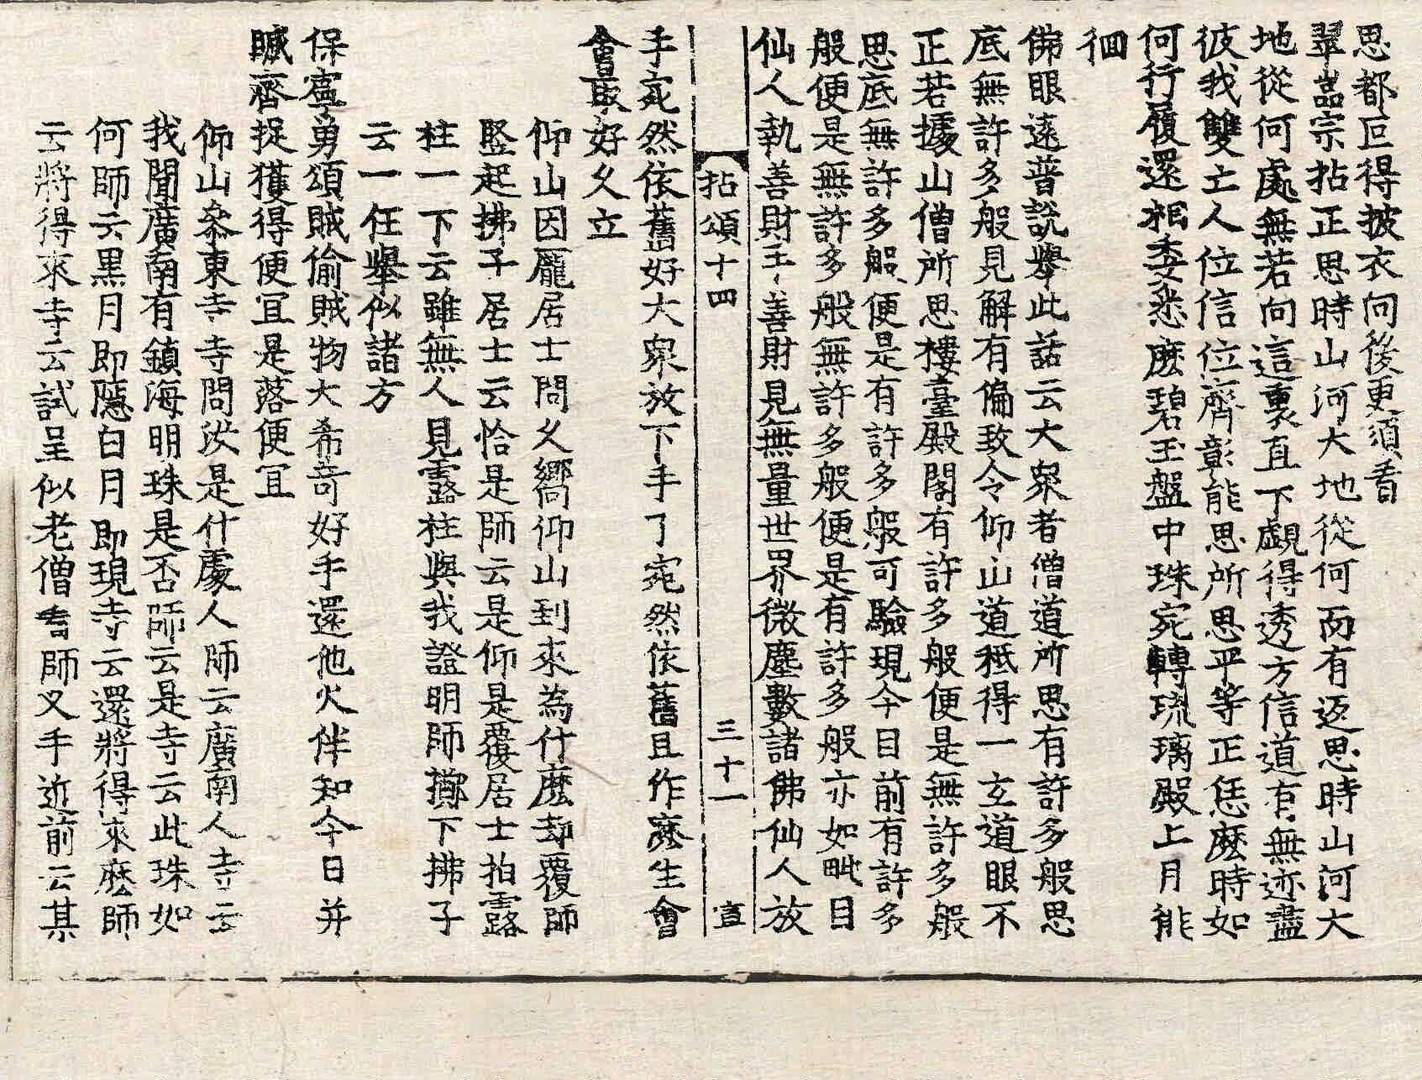 思都叵得披衣向後更須看
翠嵓宗拈正思時山河大地從何而有返思時山河大
地從何處無若向這裏直下覷得透方信道有無迹盡
彼我雙亡人位信位齊彰能思所思平等正恁麽時如
何行履還相委悉麽碧玉盤中珠宛轉琉璃殿上月能
徊
佛眼遠普說舉此話云大衆者僧道所思有許多般思
底無許多般見解有偏致令仰山道秪得一玄道眼不
正若據山僧所思樓臺殿閣有許多般便是無許多般
思底無許多般便是有許多般可驗現今目前有許多
般便是無許多般無許多般便是有許多般亦如毗目
仙人執善財手善財見無量世界微塵數諸佛仙人放
拈頌十四 三十一 宣
手宛然依舊好大衆放下手了宛然依舊且作麽生會
會取好久立
仰山因龐居士問久嚮仰山到來為什麽却覆師
竪起拂子居士云恰是師云是仰是覆居士拍露
柱一下云雖無人見露柱與我證明師擲下拂子
云一任舉似諸方
保寧勇頌賊偷賊物大希奇好手還他火伴知今日并
贓齊捉獲得便宜是落便宜
仰山叅東寺寺問汝是什處人師云廣南人寺云
我聞廣南有鎮海明珠是否師云是寺云此珠如
何師云黒月即隱白月即現寺云還將得來麽師
云將得來寺云試呈似老僧看師叉手近前云某